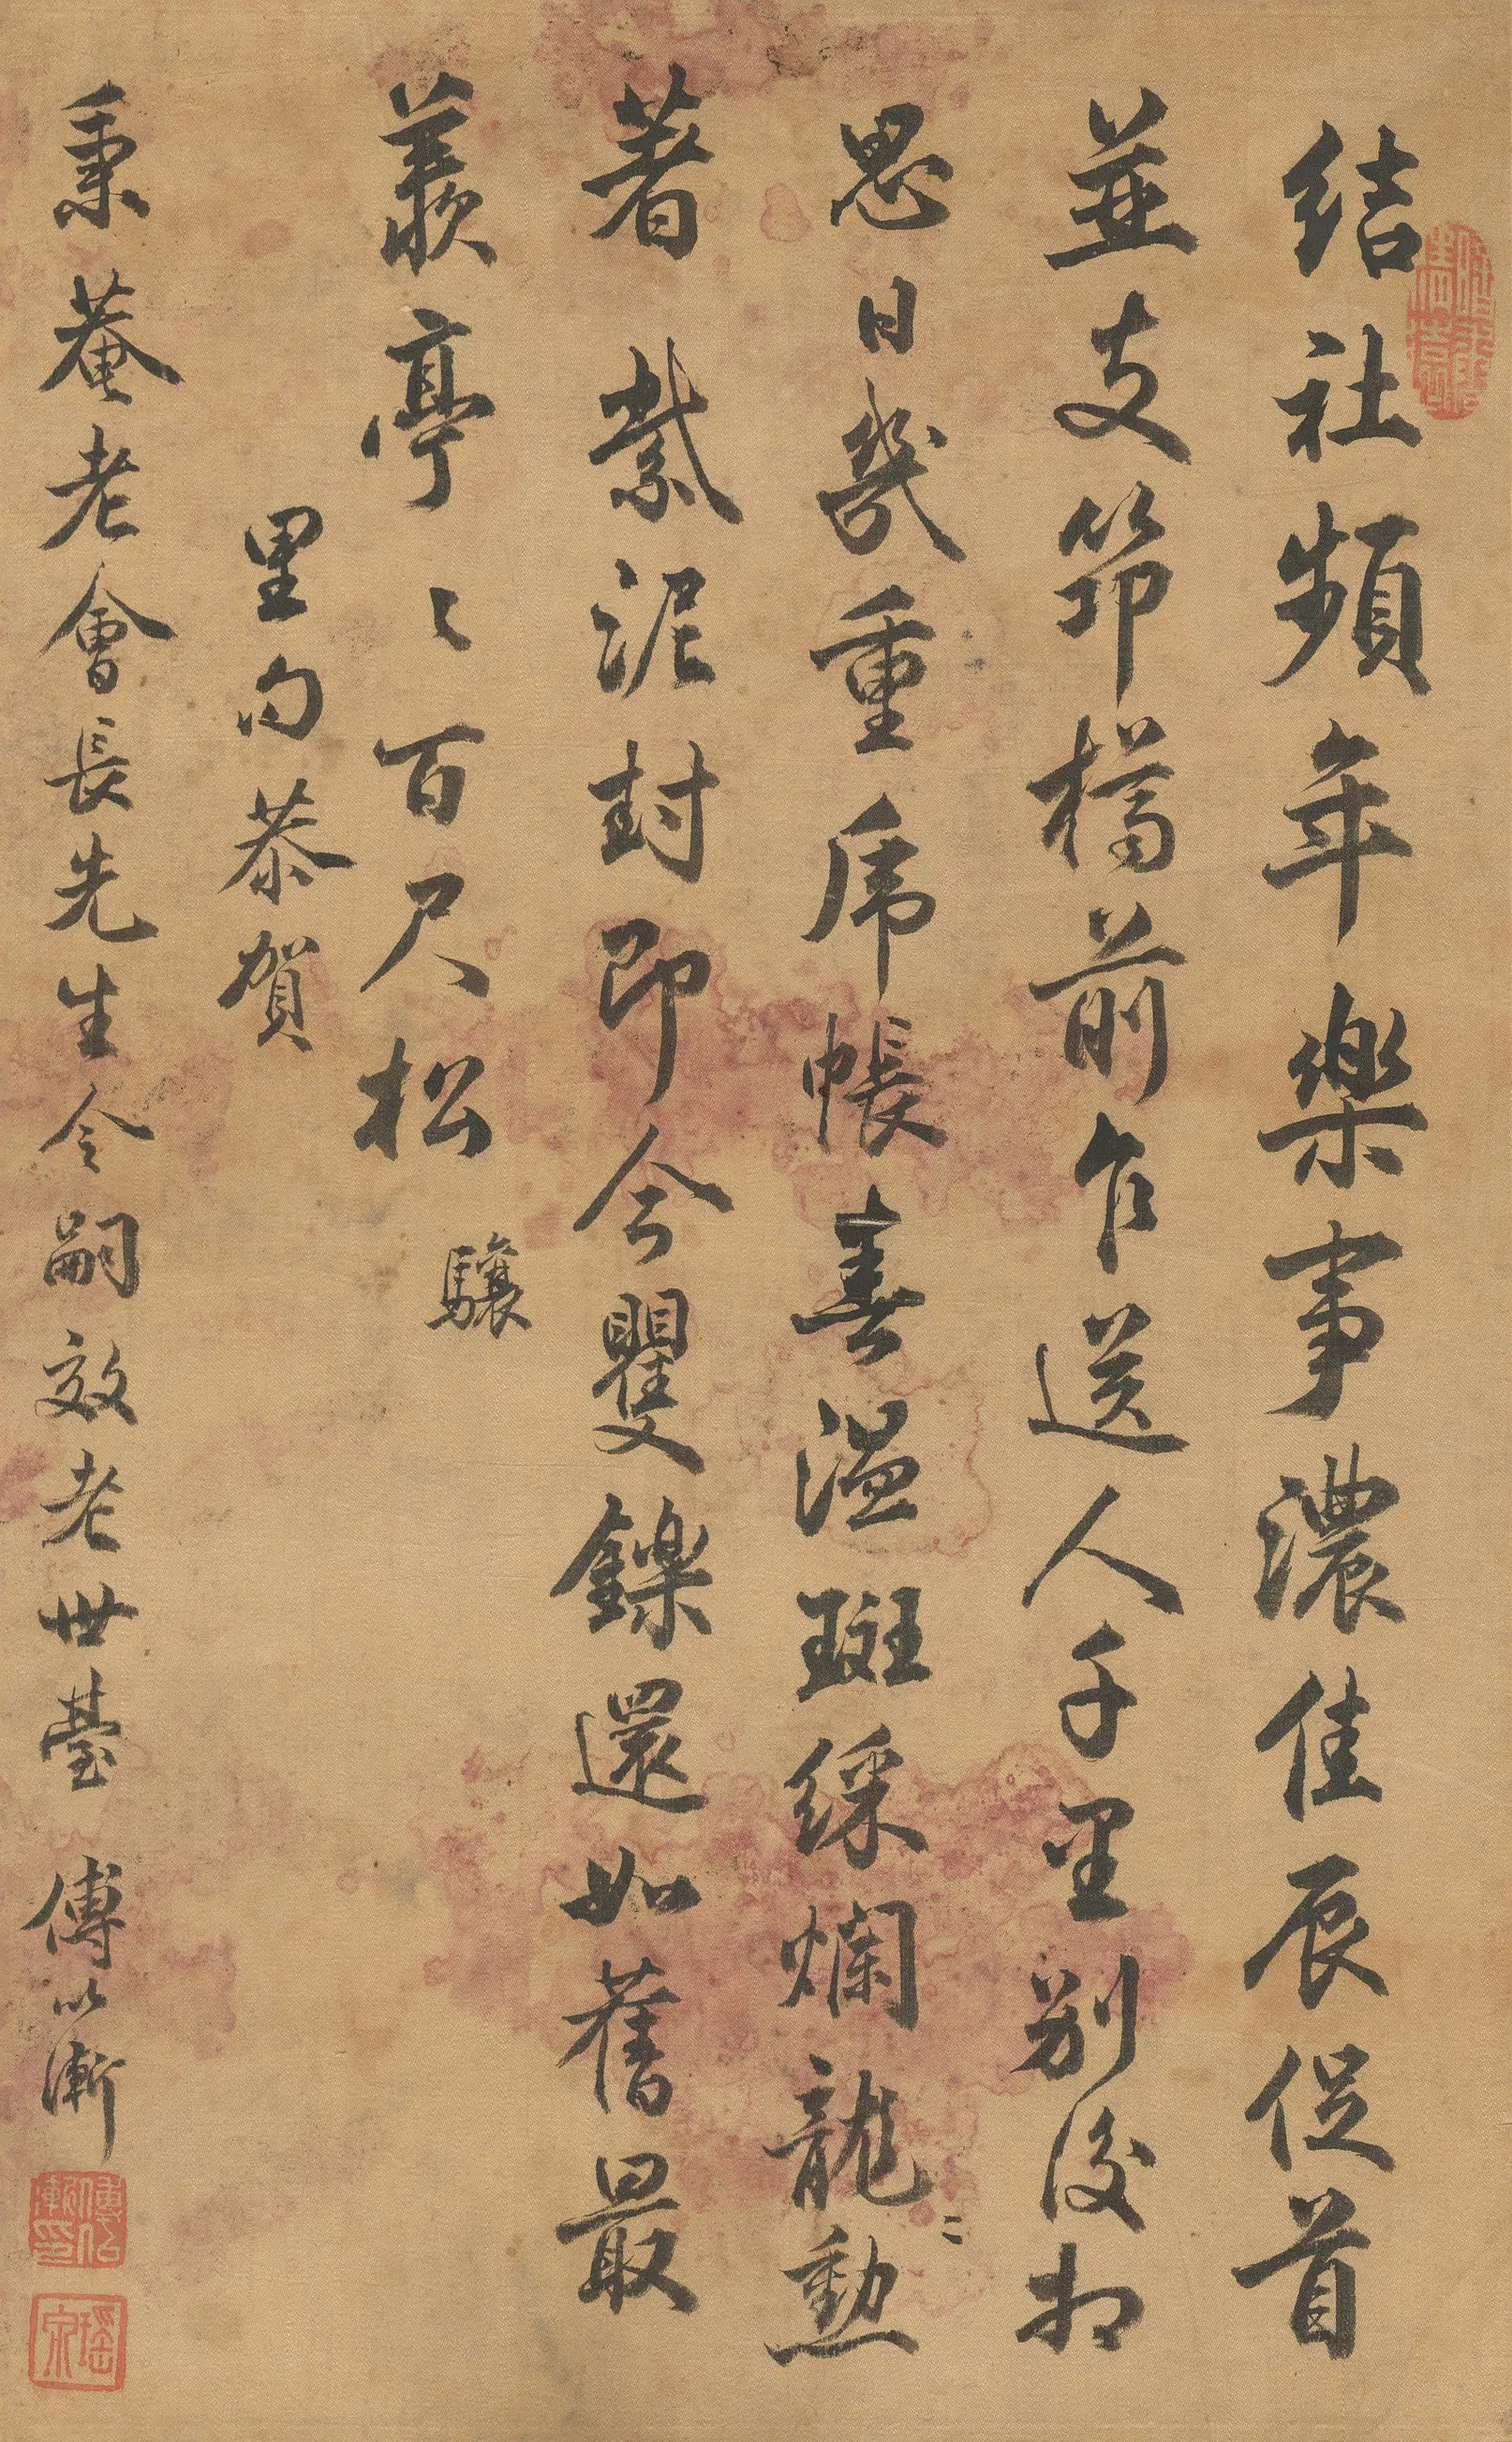 结社頻年樂事濃佳辰促首
並支笻橋前乍送人千里別後相
思日幾重乕帳春温斑綵爛龍勳
著紫泥封即今矍鑠還如舊最
羨亭〻百尺松
驤
里句恭賀
秉菴老會長先生令嗣效老世臺 傅以漸
傅以漸印